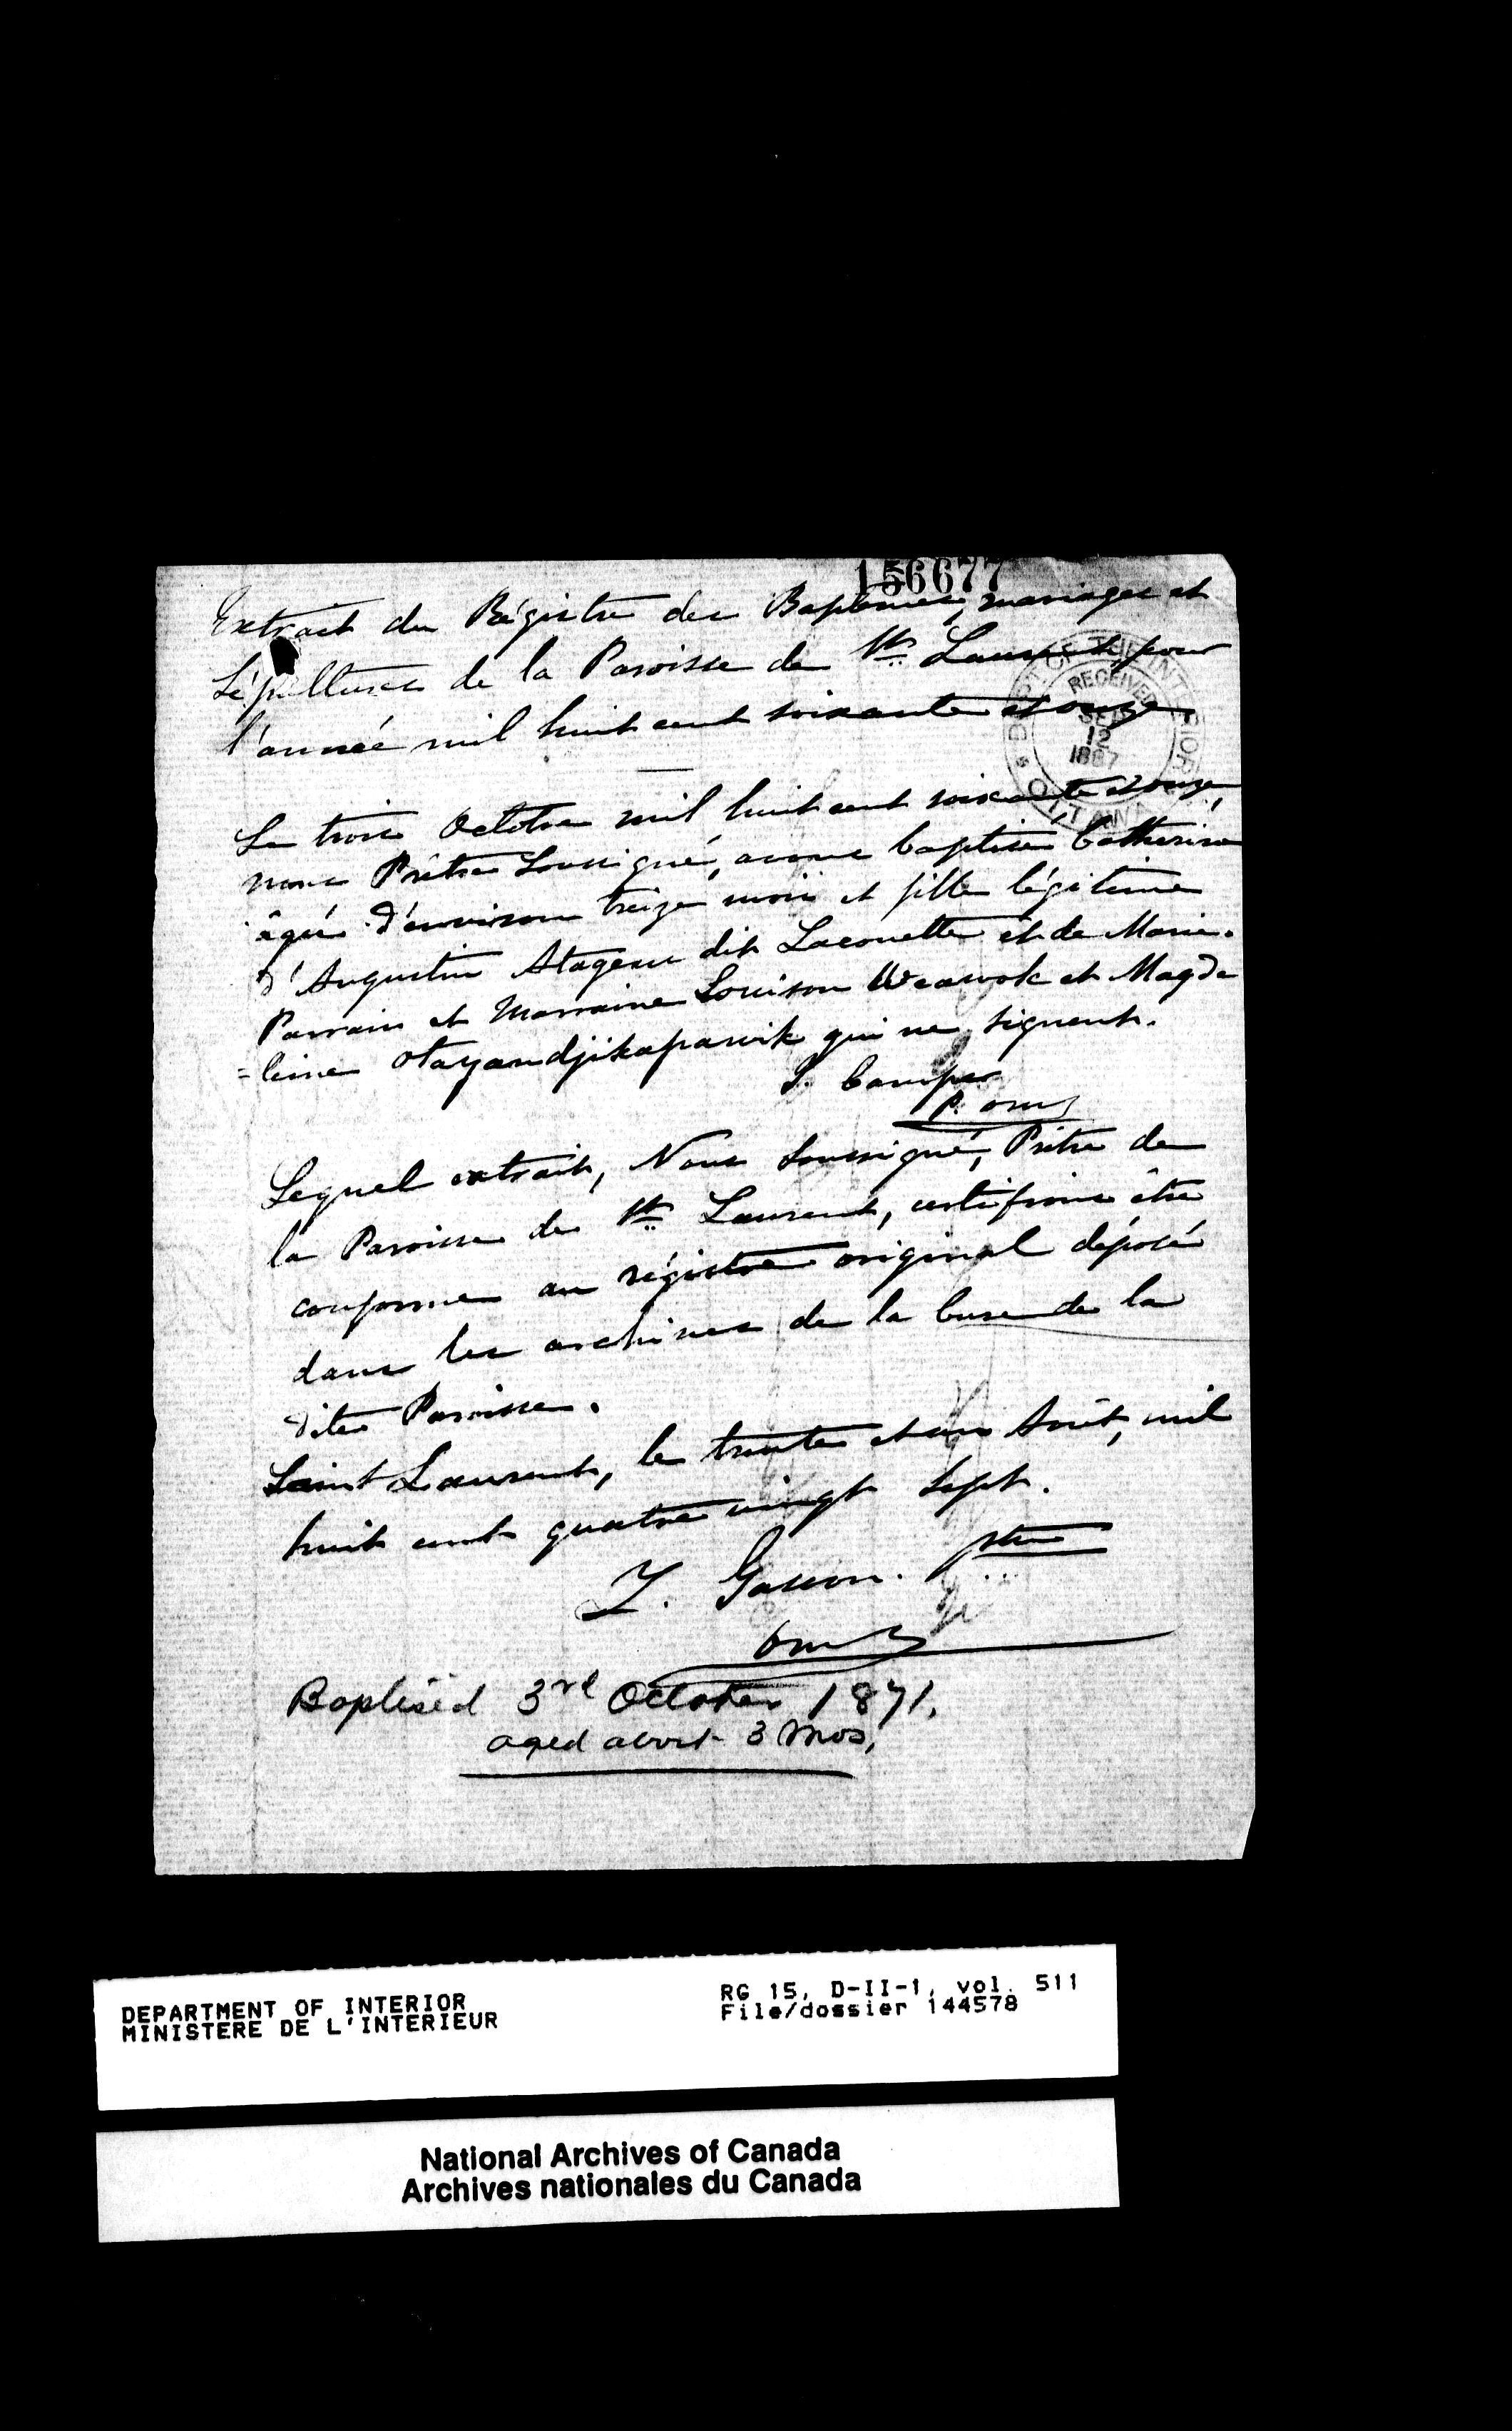 156677
Extrait du Régistre des Baptêmes, mariages et
Sépultures de la Paroisse de St. Laurent, pour
l'année mil huit cent soixante et onze.
DEPT. OF THE INTERIOR
RECEIVED
SEP
12
1887
OTTAWA
Le trois Octobre mil huit cent soixante et onze,
nous Prêtre Soussigné, avons baptisé Catherine
âgée d'environ treize mois et fille légitime
d'Augustin Atagenu dit Lacouette et de Marie.
Parrain et Marraine Louison Weawok et Magde
=leine Otayandjikapawik qui ne signent.
J. Camper
P. omi
Lequel extrait, Nous Soussigné, Prêtre de
la Paroisse de St. Laurent, certifions être
conforme au régistre original déposé
dans les archives de la Cure de la
dite Paroisse.
Saint Laurent, le trente et un Août, mil
huit cent quatre vingt Sept.
Z. Gascon. Ptre
omi
Baptised 3rd October 1871.
aged about 3 mos,
DEPARTMENT OF INTERIOR
MINISTERE DE L'INTERIEUR
RG 15, D-II-1, vol. 511
File/dossier 144578
National Archives of Canada
Archives nationales du Canada